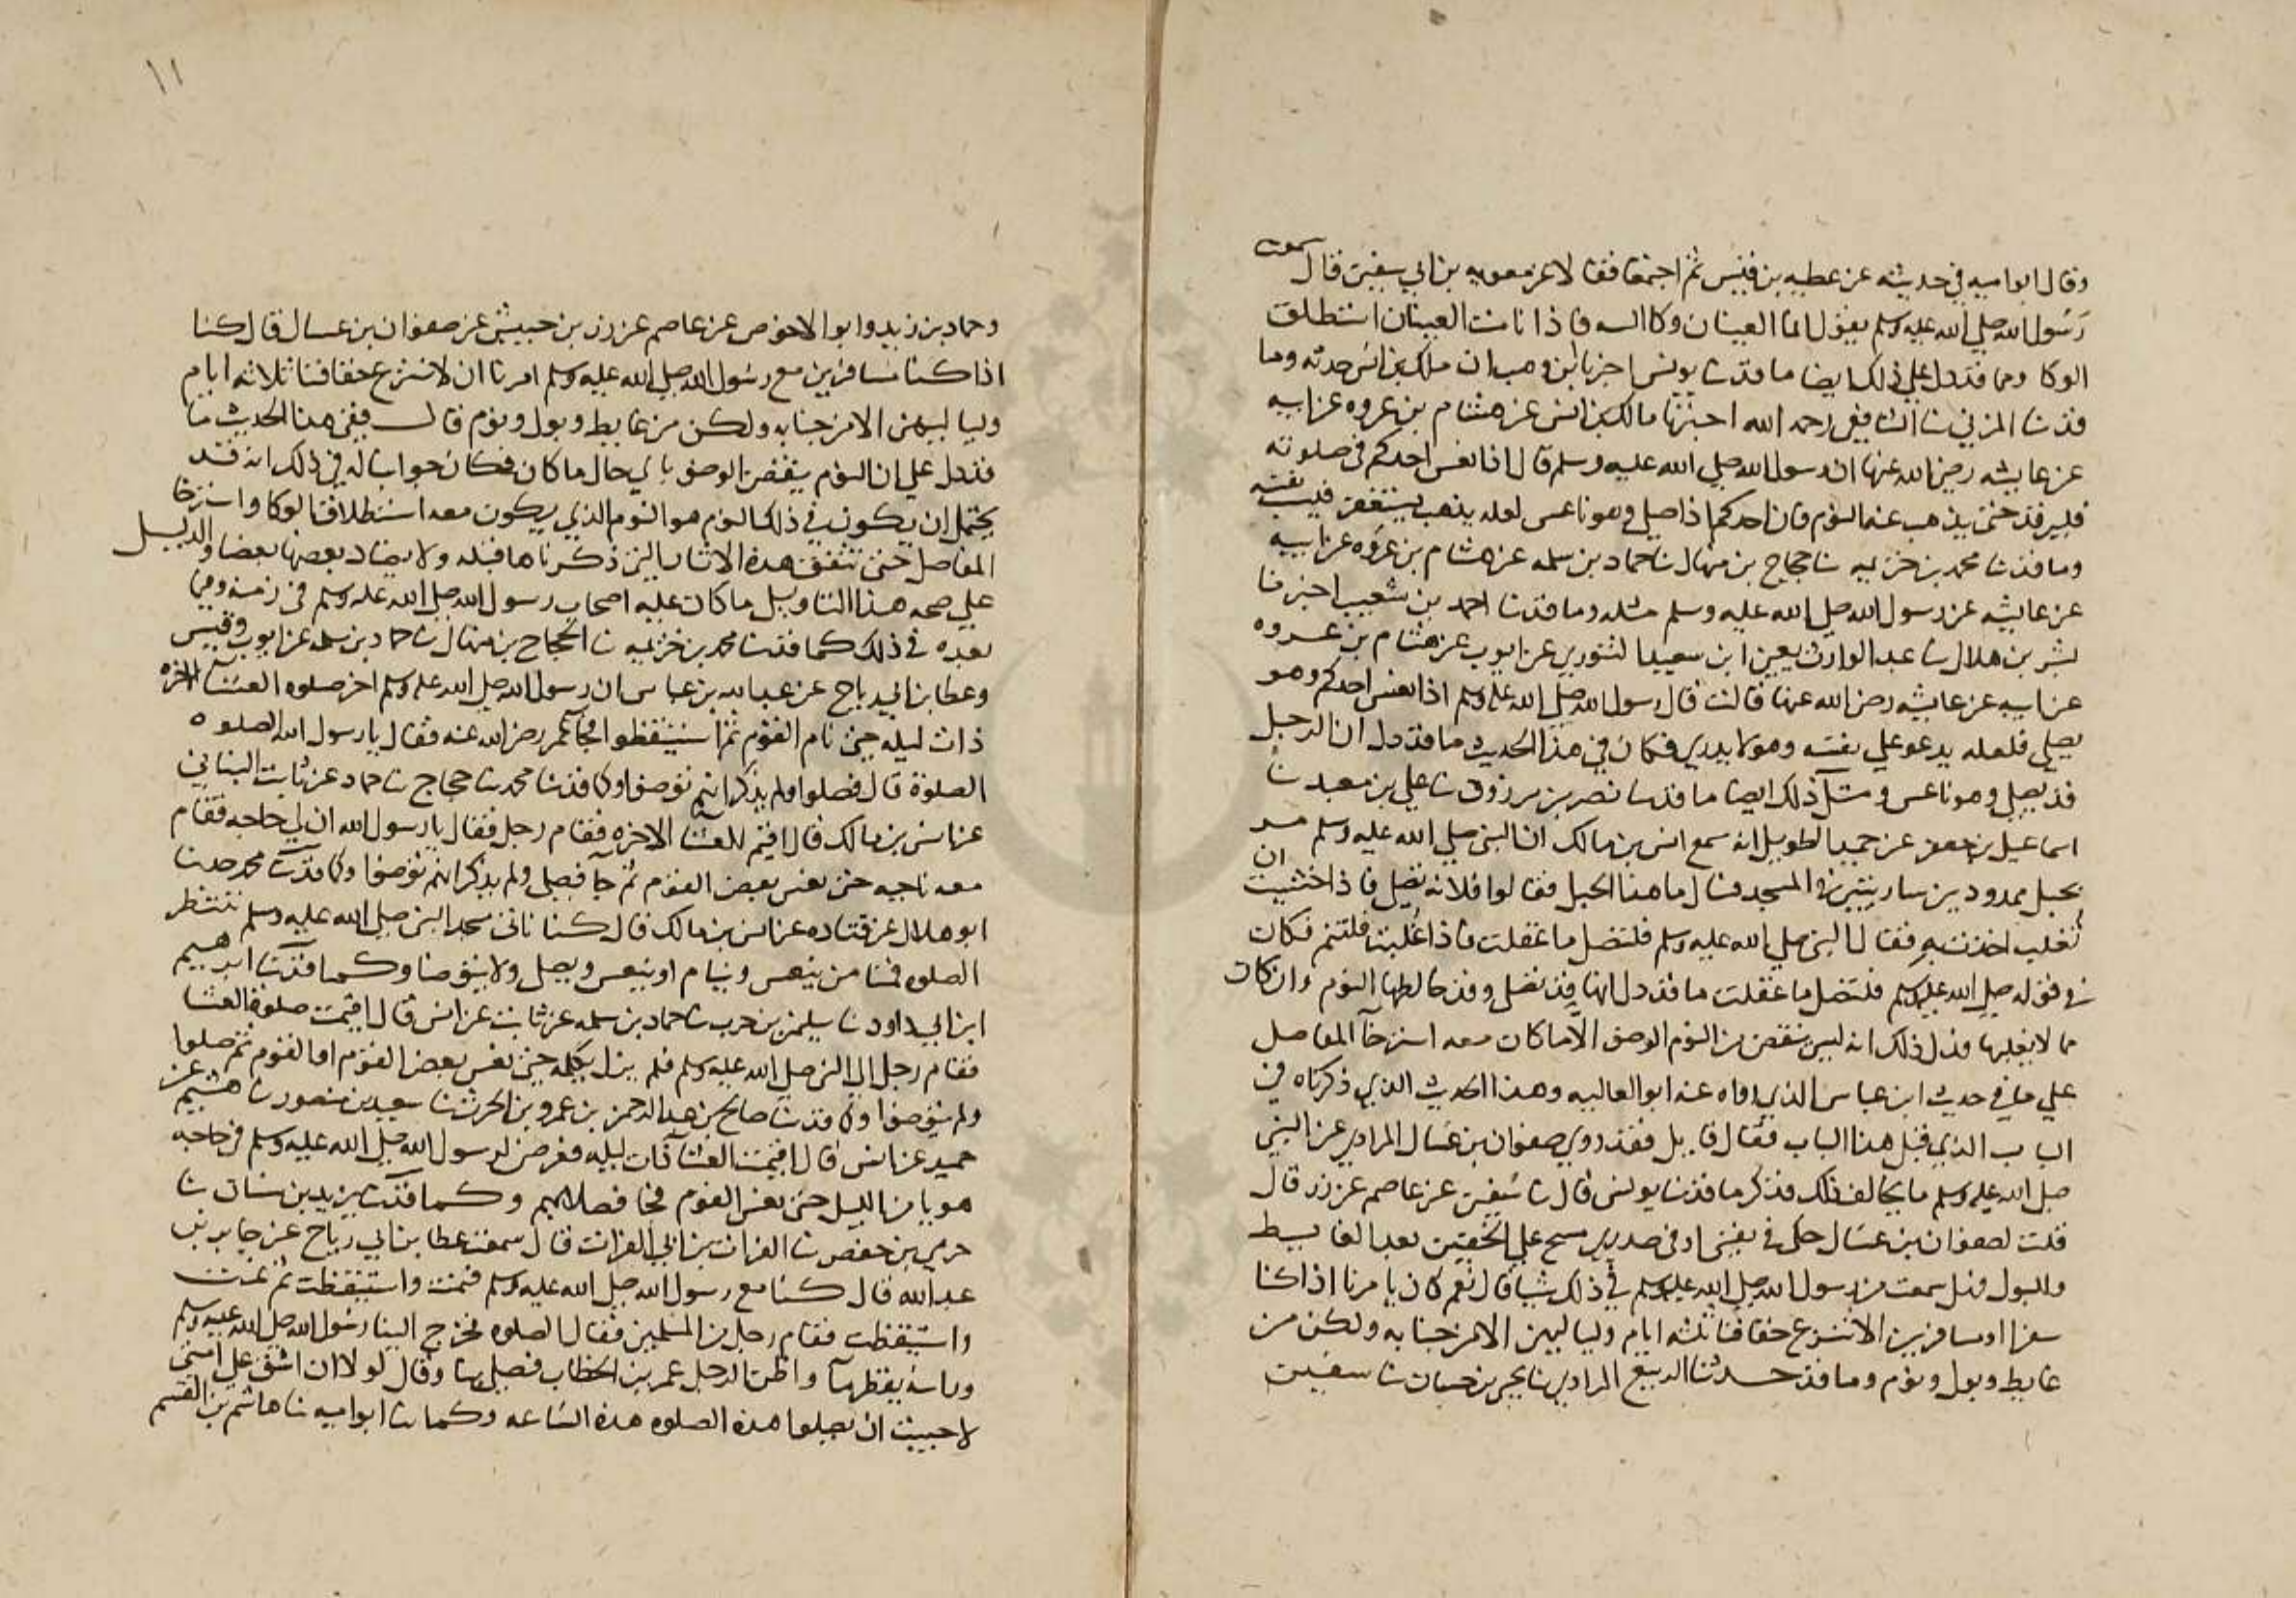 وقال ابو اميه في حديثه عن عطيه بن قيس ثم اجتمعا فقالا عن معويه بن ابي سفين قال سمعت
رسول الله صلى الله عليه وسلم يقول انما العينان وكا السه فاذا نامت العينان استطلق
الوكا ومما قد دل على ذلك ايضا ما قد ثنا يونس اخبرنا ابن وهب ان ملك بن انس حدثه وما
قد ثنا المزني ثنا الشافعي رحمه الله اخبرنا مالك بن انس عن هشام بن عروه عن ابيه
عن عايشه رضي الله عنها ان رسول الله صلى الله عليه وسلم قال اذا نعس احدكم في صلوته
فليرقد حتى يذهب عنه النوم فان احدكم اذا صلى وهو ناعس لعله يذهب يستغفر فيسب نفسه
وما قد ثنا محمد بن خزيمه ثنا حجاج بن منهال ثنا حماد بن سلمه عن هشام بن عروه عن ابيه
عن عايشه عن رسول الله صلى الله عليه وسلم مثله وما قد ثنا احمد بن شعيب اخبرنا
بشر بن هلال ثنا عبد الوارث يعني ابن سعيد التنوري عن ايوب عن هشام بن عروه
عن ابيه عن عايشه رضي الله عنها قالت قال رسول الله صلى الله عليه وسلم اذا نعس احدكم وهو
يصلي فلعله يدعو على نفسه وهو لا يدري فكان في هذا الحديث ما قد دل ان الرجل
قد يصلي وهو ناعس ومثل ذلك ايضا ما قد ثنا نصر بن مرزوق ثنا علي بن معبد ثنا
اسماعيل بن جعفر عن حميد الطويل انه سمع انس بن مالك ان النبي صلى الله عليه وسلم مر
بحبل ممدود بين ساريتين في المسجد فقال ما هذا الحبل فقالوا فلانه تصلي فاذا خشيت ان
تغلب اخذت به فقال النبي صلى الله عليه وسلم فلتصل ما عقلت فاذا غلبت فلتنم فكان
في قوله صلى الله عليه وسلم فلتصل ما عقلت ما قد دل انها قد تصلي وقد خالطها النوم وان كان
مما لا يغلبها فدل ذلك انه ليس ينقض من النوم الوضو الا ما كان معه استرخآ المفاصل
على ما في حديث ابن عباس الذي رواه عنه ابو العاليه وهذا الحديث الذي ذكرناه في
الباب الذي قبل هذا الباب فقال قايل فقد روي صفوان بن عسال المرادي عن النبي
صلى الله عليه وسلم ما يخالف ذلك فذكر ما قد ثنا يونس قال ثنا سفين عن عاصم عن زر قال
قلت لصفوان بن عسال حك في نفسي او في صدري مسح على الخفين بعد الغايط
والبول فهل سمعت من رسول الله صلى الله عليه وسلم في ذلك شيا قال نعم كان يامرنا اذا كنا
سفرا او مسافرين الا ننزع خفافنا ثلثه ايام ولياليهن الا من جنابه ولكن من
غايط وبول ونوم وما قد حدثنا الربيع المرادي ثنا يحيى بن حسان ثنا سفين
١١
وحماد بن زيد وابو الاحوص عن عاصم عن زر بن حبيش عن صفوان بن عسال قال كنا
اذا كنا مسافرين مع رسول الله صلى الله عليه وسلم امرنا ان لا ننزع خفافنا ثلاثه ايام
ولياليهن الا من جنابه ولكن من غايط وبول ونوم قال ففي هذا الحديث ما
قد دل على ان النوم ينقض الوضو باي حال ما كان فكان جوابنا له في ذلك انه قد
يحتمل ان يكون في ذلك النوم هو النوم الذي يكون معه استطلاق الوكا واسترخا
المفاصل حتى تتفق هذه الاثار التي ذكرناها قبله ولا يضاد بعضها بعضا والدليل
على صحه هذا التاويل ما كان عليه اصحاب رسول الله صلى الله عليه وسلم في زمنه وفيما
بعده في ذلك كما قد ثنا محمد بن خزيمه ثنا الحجاج بن منهال ثنا حماد بن سلمه عن ايوب وقيس
وعطا بن ابي رباح عن عبد الله بن عباس ان رسول الله صلى الله عليه وسلم اخر صلوه العشآ الاخره
ذات ليله حتى نام القوم ثم استيقظوا فجآ عمر رضي الله عنه فقال يا رسول الله الصلوه
الصلوة قال فصلوا ولم يذكر انهم توضوا وكما قد ثنا محمد ثنا حجاج ثنا حماد عن ثابت البناني
عن انس بن مالك قال اقيمت العشآ الاخره فقام رجل فقال يا رسول الله ان لي حاجه فقام
معه ناجيه حتى نعس بعض القوم ثم جآ فصلى ولم يذكر انهم توضوا وكما قد ثنا محمد حدثنا
ابو هلال عن قتاده عن انس بن مالك قال كنا ناتي مسجد النبي صلى الله عليه وسلم ننتظر
الصلوه فمنا من ينعس وينام او ينعس ويصلي ولا يتوضا وكما قد ثنا ابرهيم
ابن ابي داود ثنا سليمن بن حرب ثنا حماد بن سلمه عن ثابت عن انس قال اقيمت صلوة العشا
فقام رجل الى النبي صلى الله عليه وسلم فلم يزل يكلمه حتى نعس بعض القوم او القوم ثم صلوا
ولم يتوضوا وكما قد ثنا صالح بن عبد الرحمن بن عمرو بن الحرث ثنا سعيد بن منصور ثنا هشيم عن
حميد عن انس قال اقيمت العشآ ذات ليله فعرض لرسول الله صلى الله عليه وسلم في حاجه
هويا من الليل حتى نعس القوم فجا فصلى بهم وكما قد ثنا يزيد بن سنان ثنا
حرمي بن حفص ثنا الفرات بن ابي الفرات قال سمعت عطا بن ابي رباح عن جابر بن
عبد الله قال كنا مع رسول الله صلى الله عليه وسلم فنمت واستيقظت ثم نمت
واستيقظت فقام رجل من المسلمين فقال الصلوه فخرج الينا رسول الله صلى الله عليه وسلم
وراسه يقطر مآ واظن الرجل عمر بن الخطاب فصلى بنا وقال لولا ان اشق على امتي
لاحببت ان يصلوا هذه الصلوه هذه الساعه وكما ثنا ابو اميه ثنا هاشم بن القسم